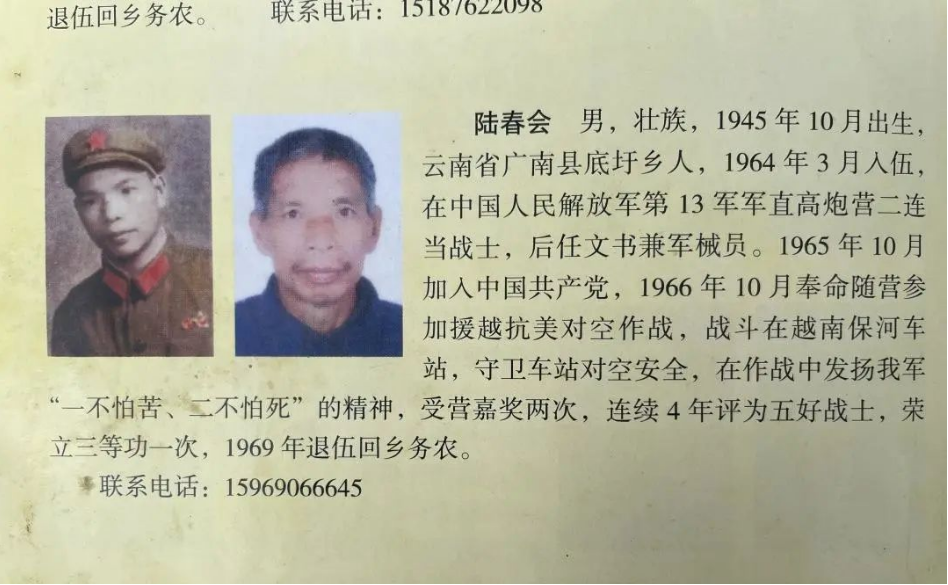 退伍回乡务农。 联系电话：15187622098
陆春会 男，壮族，1945 年 10 月出生，
云南省广南县底圩乡人，1964 年 3 月入伍，
在中国人民解放军第 13 军军直高炮营二连
当战士，后任文书兼军械员。1965 年 10 月
加入中国共产党，1966 年 10 月奉命随营参
加援越抗美对空作战，战斗在越南保河车
站，守卫车站对空安全，在作战中发扬我军
“一不怕苦、二不怕死”的精神，受营嘉奖两次，连续 4 年评为五好战士，荣
立三等功一次，1969 年退伍回乡务农。
联系电话：15969066645